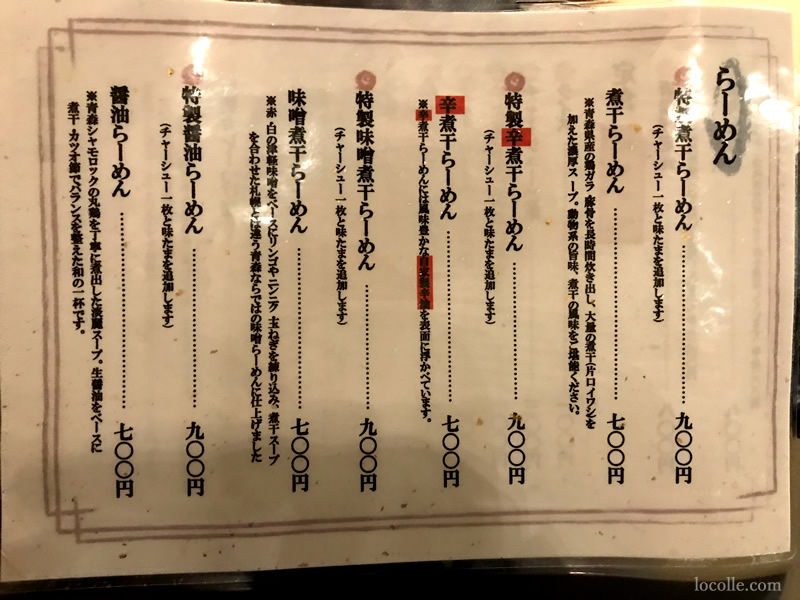 らーめん
特製煮干らーめん……………九〇〇円
(チャーシュー一枚と味たまを追加します)
煮干らーめん……………七〇〇円
※青森県産の鶏ガラ、豚骨を長時間炊き出し、大量の煮干(片口イワシ)を
加えた濃厚スープ。動物系の旨味、煮干の風味をご堪能ください。
特製辛煮干らーめん……………九〇〇円
(チャーシュー一枚と味たまを追加します)
辛煮干らーめん……………七〇〇円
※辛煮干らーめんには風味豊かな自家製辛油を表面に浮かべています。
特製味噌煮干らーめん……………九〇〇円
(チャーシュー一枚と味たまを追加します)
味噌煮干らーめん……………七〇〇円
※赤、白の津軽味噌をベースにリンゴやニンニク、玉ねぎを練り込み、煮干スープ
を合わせた札幌とは違う青森ならではの味噌らーめんに仕上げました
特製醤油らーめん……………九〇〇円
(チャーシュー一枚と味たまを追加します)
醤油らーめん……………七〇〇円
※青森シャモロックの丸鶏を丁寧に煮出した清麗スープ。生醤油をベースに
煮干、カツオ節でバランスを整えた和の一杯です。
locolle.com